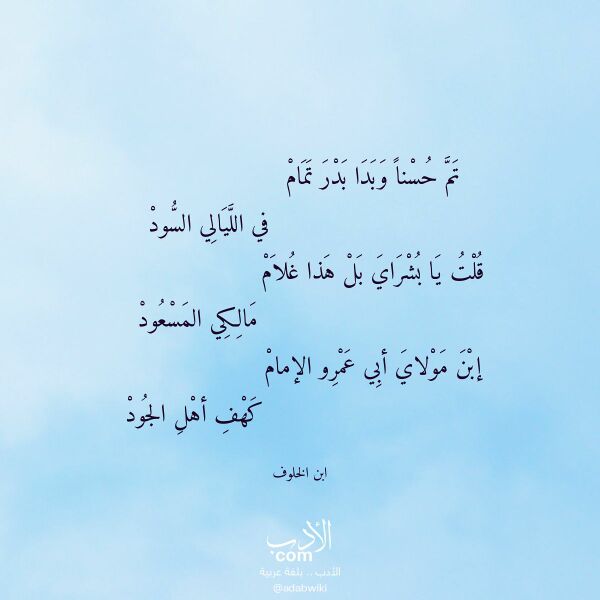 تَمَّ حُسْناً وَبَدَا بَدْرَ تَمَامْ
في اللَّيَالِي السُّودْ
قُلْتُ يَا بُشْرَايَ بَلْ هَذا غُلاَمْ
مَالِكِي المَسْعُودْ
إبْنَ مَوْلايَ أبِي عَمْرِو الإمامْ
كَهْفِ أهْلِ الجُودْ
ابن الخلوف
الأدب
com
الأدب .. بلغة عربية
@adabwiki